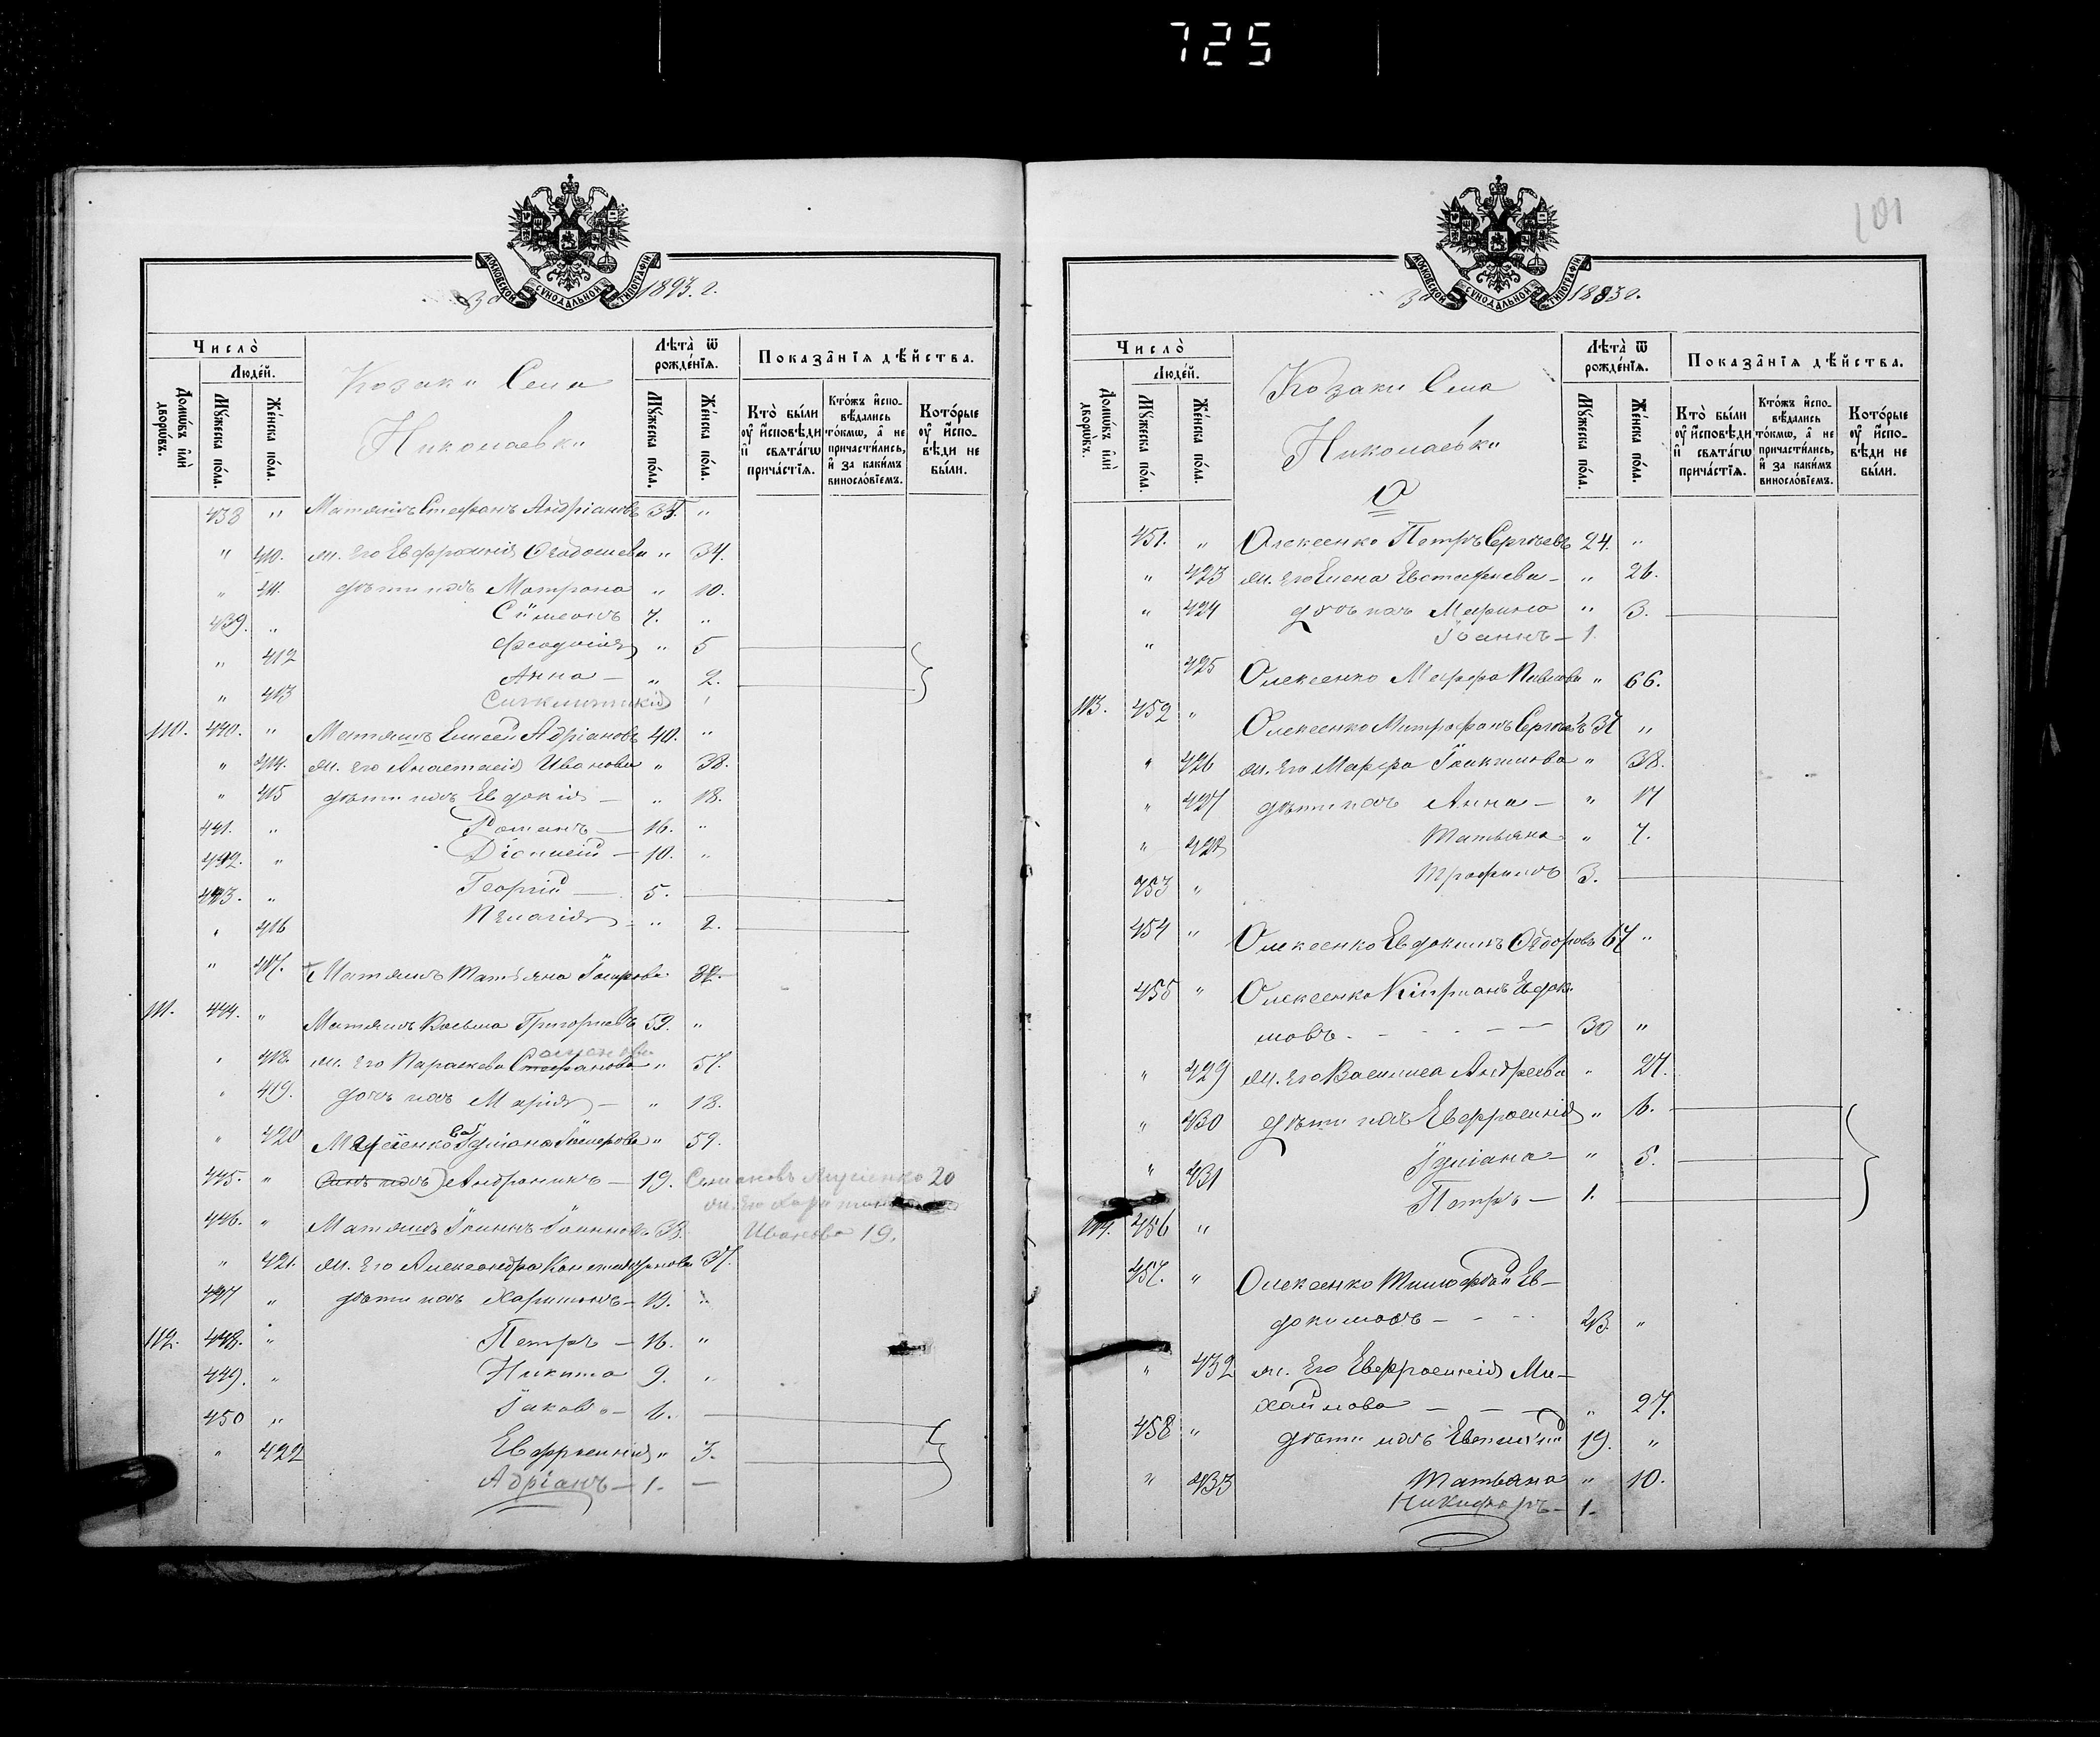 725
МОСКОВСКОЙ СѴНОДАЛЬНОЙ ТИПОГРАФІИ
За 1893. г.
Число̀
Людéй.
Домѡ́въ и҆лѝ дворѡ́въ.
Мꙋ́жеска по́ла.
Же́нска по́ла.
Козаки Села
Николаевки
Лѣ́та ѿ рожде́нїѧ.
Мꙋ́жеска по́ла.
Же́нска по́ла.
Показа̑нїѧ дѣ́йства.
Кто̀ бы́ли ᲂу҆ и҆сповѣ́ди и҆ свѧта́гѡ прича́стїѧ.
Кто́жъ и҆сповѣ́дались то́кмѡ, а҆ не причасти́лись, и҆ за каки́мъ винослѡ́вїемъ.
Кото́рые ᲂу҆ и҆спо́вѣди не бы́ли.
438 " Матяшъ Стефанъ Андріановъ 35. "
" 410. ж. его Евфросинія Ѳеодосиева " 34.
" 411. дѣти ихъ Матрона " 10.
439. " Симеонъ 7. "
" 412 Феодосія " 5
" 413 Анна — " 2.
Синклитикія
110. 440. " Матяшъ Елисей Адріановъ 40. "
" 414. ж. его Анастасія Иванова " 38.
" 415 дѣти ихъ Евдокія — " 18.
441. " Романъ — 16. "
442. " Діонисій — 10. "
443. " Георгій — 5.
" 416 Пелагія " 2.
" 417. Матяшъ Татьяна
111. 444. " Матяшъ Косьма Григорьевъ 59. "
" 418. ж. его Параскева Стефанова " 57.
" 419. дочь ихъ Марія — " 18.
" 420 59.
445. " Сынъ ихъ Андроникъ — 19. 20
446. " Матяшъ Іоаннъ Іоанновъ 38. Иванова 19.
" 421. ж. его Александра Константинова 37.
447 " дѣти ихъ Харитонъ — 19. "
112. 448. " Петръ — 16. "
449. " Никита 9. "
450 " Іаковъ — 6. —
" 422 Евфросинія " 3.
Адріанъ — 1. —
101
МОСКОВСКОЙ СѴНОДАЛЬНОЙ ТИПОГРАФІИ
За 1893 г.
Число̀
Людéй.
Домѡ́въ и҆лѝ дворѡ́въ.
Мꙋ́жеска по́ла.
Же́нска по́ла.
Козаки Села
Николаевки
О
Лѣ́та ѿ рожде́нїѧ.
Мꙋ́жеска по́ла.
Же́нска по́ла.
Показа̑нїѧ дѣ́йства.
Кто̀ бы́ли ᲂу҆ и҆сповѣ́ди и҆ свѧта́гѡ прича́стїѧ.
Кто́жъ и҆сповѣ́дались то́кмѡ, а҆ не причасти́лись, и҆ за каки́мъ винослѡ́вїемъ.
Кото́рые ᲂу҆ и҆спо́вѣди не бы́ли.
451. " Олексенко Петръ Сергѣевъ 24. "
" 423 ж. его Елена Евстафиева — " 26.
" 424 дочь ихъ Марина " 3.
" Іоаннъ — 1.
425 Олексенко Марфа Павлова " 66.
113. 452 " Олексенко Митрофанъ Сергѣевъ 37 "
" 426 ж. его Марфа Іоакимова " 38.
" 427 дѣти ихъ Анна — " 17
" 428 Татьяна " 7.
453 " Трофимъ 3.
454 " Олексенко Евдокимъ Ѳеодоровъ 67 "
455 " Олексенко Кипріанъ Евдоки-
мовъ. — 30 "
" 429 ж. его Василиса Андреева " 27.
" 430 дѣти ихъ Евфросинія " 6.
" 431 Іуліана — " 5.
Петръ — 1.
114. 456 "
457. " Олексенко Тимофей Ев-
докимовъ — 23. "
" 432 ж. его Евфросинія Ми-
хайлова — " 27.
458 " дѣти ихъ Евстафій 19. "
" 433 Татьяна " 10.
Никифоръ — 1.